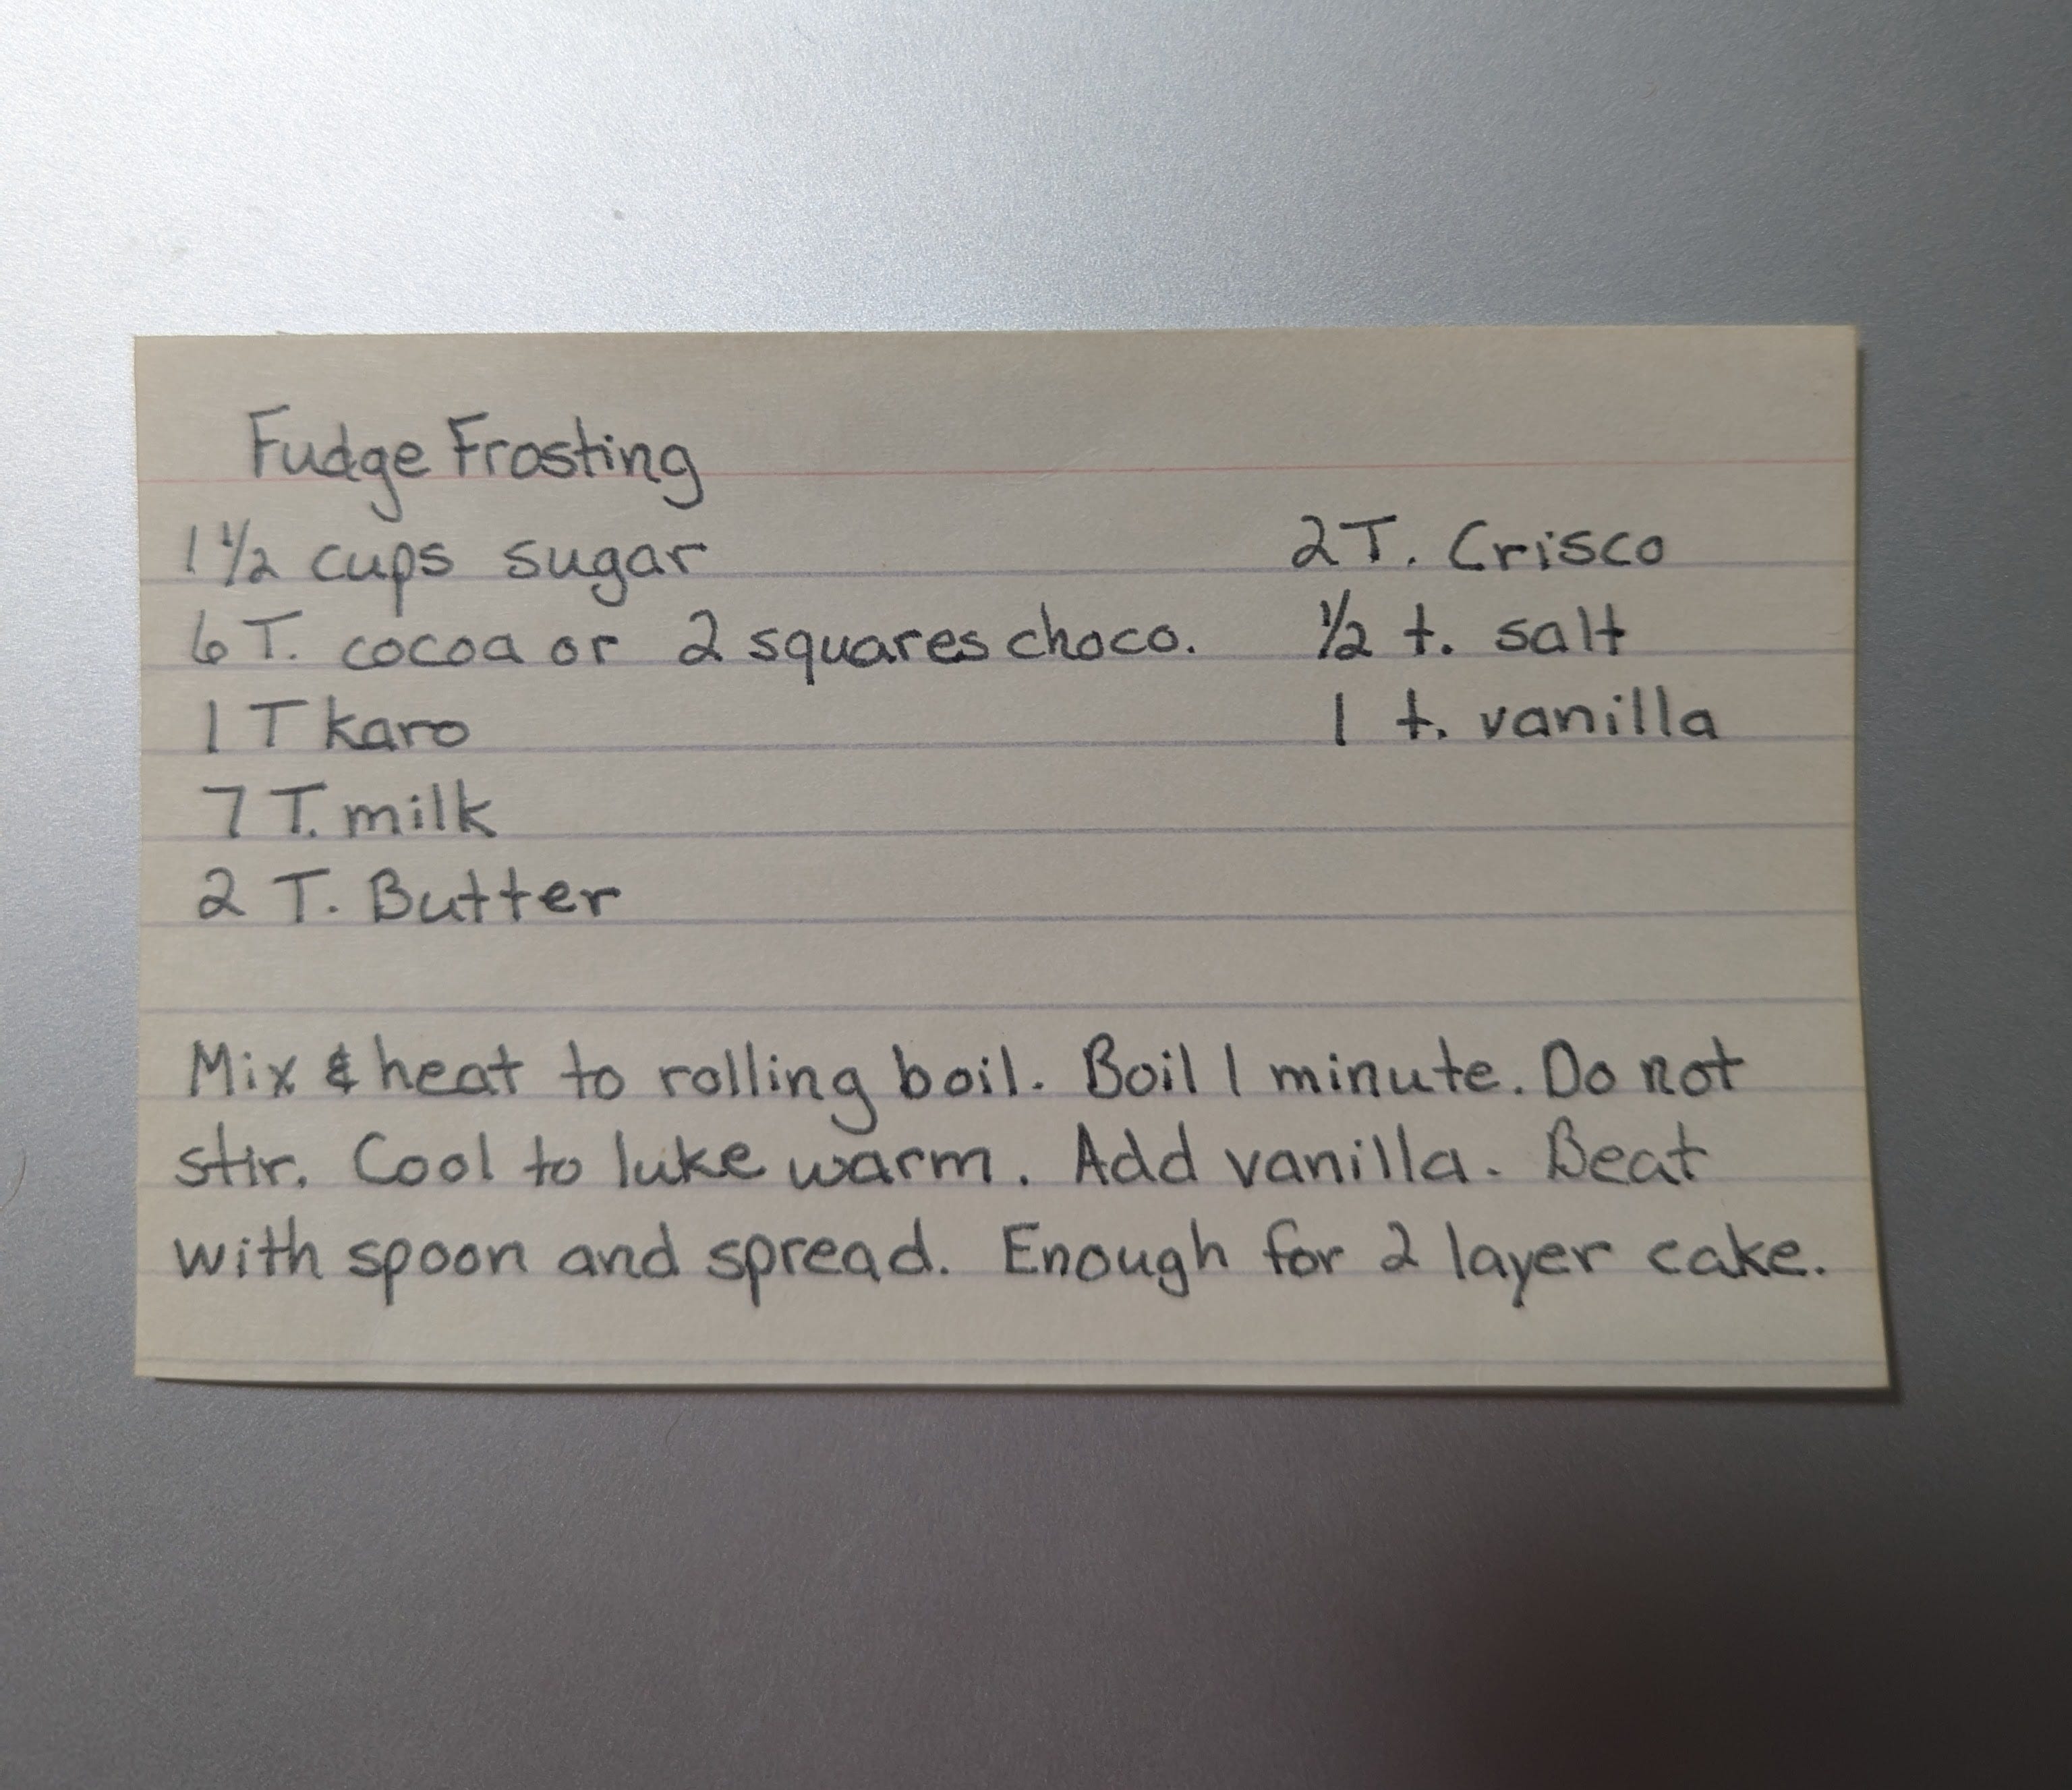 Fudge Frosting
1 1/2 cups sugar
6 T. cocoa or 2 squares choco.
1 T karo
7 T. milk
2 T. Butter
2 T. Crisco
1/2 t. salt
1 t. vanilla
Mix & heat to rolling boil. Boil 1 minute. Do not
stir. Cool to luke warm. Add vanilla. Beat
with spoon and spread. Enough for 2 layer cake.